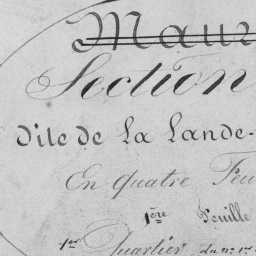 Maur
Section
Dite de La Lande.
En quatre Feu
1ère Feuille
1er Quartier du n° 1er